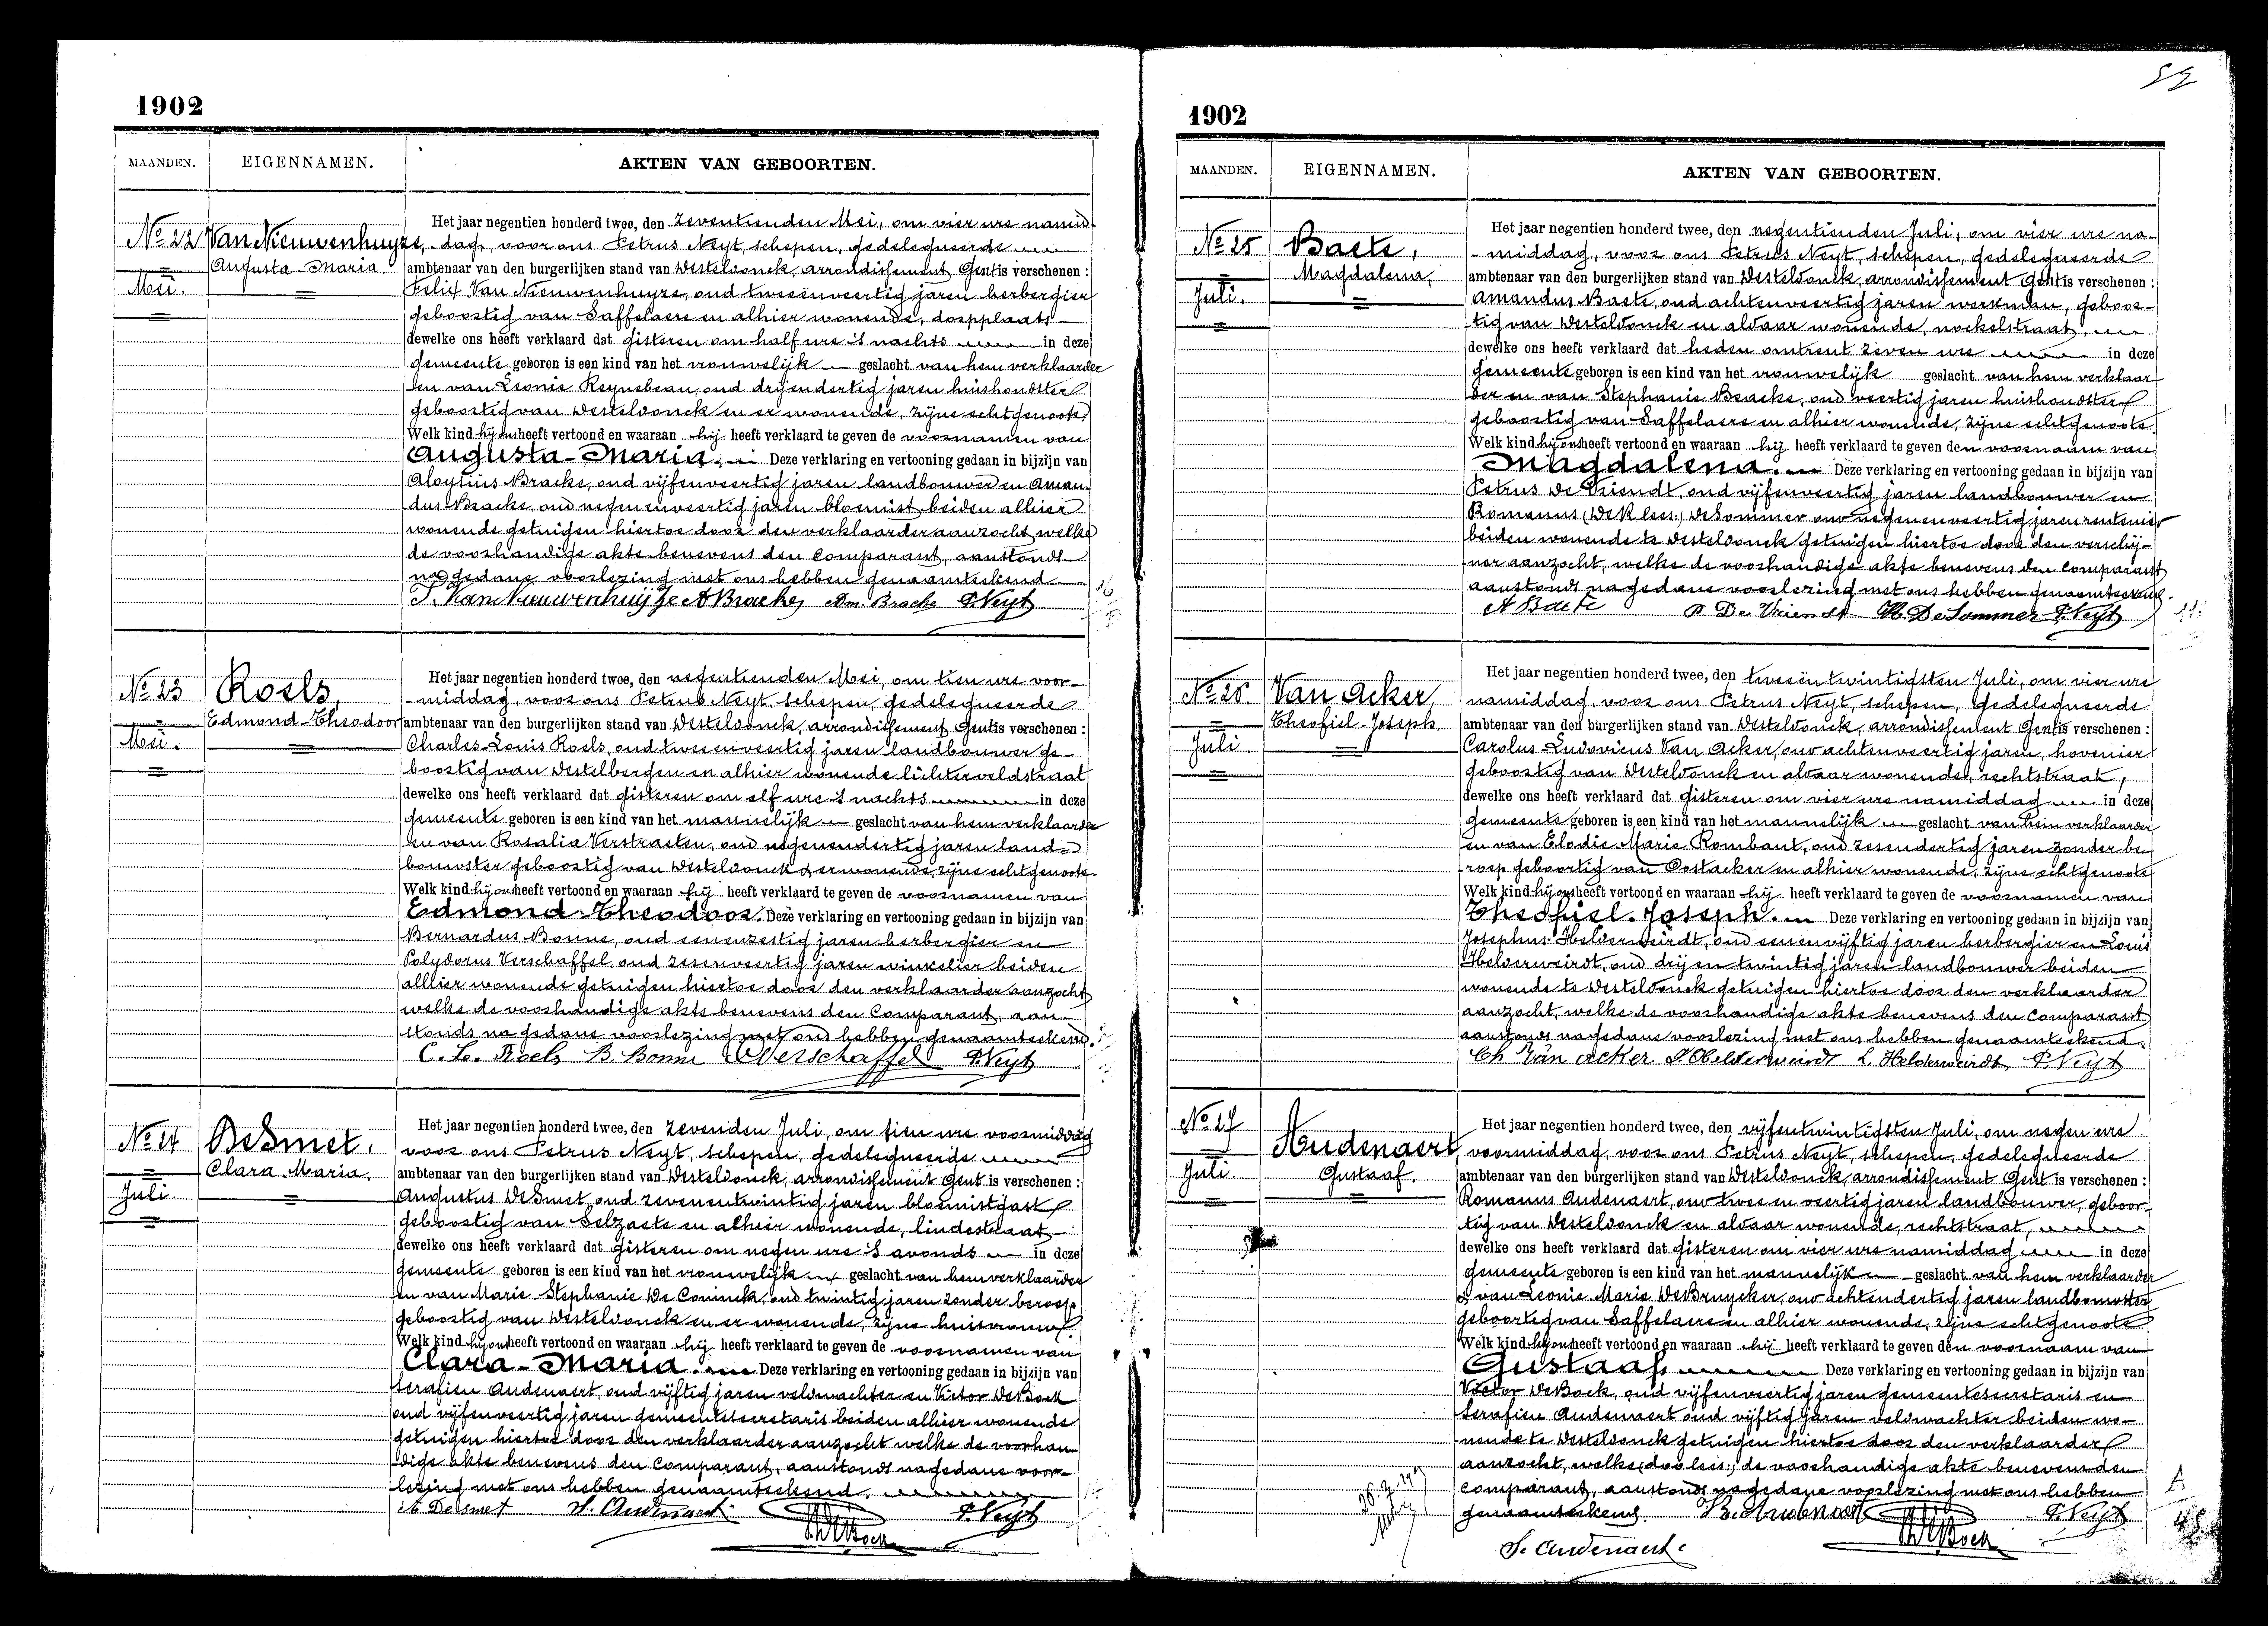 1902
MAANDEN. EIGENNAMEN. AKTEN VAN GEBOORTEN.
No 22 Van Nieuwenhuyze,
Augusta-Maria
Mei.
Het jaar negentien honderd twee, den zeventienden Mei, om vier ure namid-
dag, voor ons Petrus Neyt, schepen, gedelegueerde
ambtenaar van den burgerlijken stand van Westeldonck, arrondissement Gent is verschenen :
Felix Van Nieuwenhuyze, oud tweeënveertig jaren herbergier
geboortig van Saffelaere en alhier wonende, dorpplaats
dewelke ons heeft verklaard dat gisteren om half ure 's nachts in deze
gemeente geboren is een kind van het vrouwelijk geslacht van hem verklaarder
en van Leonie Reynebeau, oud drijendertig jaren huishoudster
geboortig van Westeldonck en er wonende, zijne echtgenoote
Welk kind hij ons heeft vertoond en waaraan hij heeft verklaard te geven de voornamen van
Augusta-Maria. Deze verklaring en vertooning gedaan in bijzijn van
Aloysius Bracke, oud vijfenveertig jaren landbouwer en Aman-
dus Bracke, oud negenenveertig jaren bloemist beiden alhier
wonende getuigen hiertoe door den verklaarder aanzocht welke
de voorhandige akte benevens den comparant, aanstonds
na gedane voorlezing met ons hebben genaamteekend.
F. Van Nieuwenhuijze A Bracke Am. Bracke P. Neyt
No 23 Roels,
Edmond-Theodoor
Mei.
Het jaar negentien honderd twee, den negentienden Mei, om tien ure voor-
middag, voor ons Petrus Neyt, schepen, gedelegueerde
ambtenaar van den burgerlijken stand van Westeldonck, arrondissement Gent is verschenen :
Charles-Louis Roels, oud tweeenveertig jaren landbouwer ge-
boortig van Destelbergen en alhier wonende lichterveldstraat
dewelke ons heeft verklaard dat gisteren om elf ure 's nachts in deze
gemeente geboren is een kind van het mannelijk geslacht van hem verklaarder
en van Rosalia Verstraeten, oud negenendertig jaren land-
bouwster geboortig van Westeldonck & er wonende, zijne echtgenoote
Welk kind hij ons heeft vertoond en waaraan hij heeft verklaard te geven de voornamen van
Edmond-Theodoor. Deze verklaring en vertooning gedaan in bijzijn van
Bernardus Bonne, oud eenenzestig jaren herbergier en
Polydorus Verschaffel, oud zesenveertig jaren winkelier beiden
alhier wonende getuigen hiertoe door den verklaarder aanzocht
welke de voorhandige akte benevens den Comparant, aan-
stonds na gedane voorlezing met ons hebben genaamteekend.
C. L. Roels B. Bonne Verschaffel P. Neyt
No 24 DeSmet.
Clara Maria.
Juli.
Het jaar negentien honderd twee, den zevenden Juli, om tien ure voormiddag
voor ons Petrus Neyt, schepen, gedelegueerde
ambtenaar van den burgerlijken stand van Westeldonck, arrondissement Gent is verschenen :
Augustus DeSmet, oud zevenentwintig jaren bloemistgast
geboortig van Selzaete en alhier wonende, lindestraat
dewelke ons heeft verklaard dat gisteren om negen ure 's avonds in deze
gemeente geboren is een kind van het vrouwelijk geslacht van hem verklaarder
en van Marie Stephanie De Coninck, oud twintig jaren zonder beroep
geboortig van Westeldonck en er wonende, zijne huisvrouw.
Welk kind hij ons heeft vertoond en waaraan hij heeft verklaard te geven de voornamen van
Clara-Maria. Deze verklaring en vertooning gedaan in bijzijn van
Serafien Audenaert, oud vijftig jaren veldwachter en Victor DeBock
oud vijfenveertig jaren gemeentesecretaris beiden alhier wonende
getuigen hiertoe door den verklaarder aanzocht welke de voorhan
dige akte benevens den Comparant, aanstonds na gedane voor-
lezing met ons hebben genaamteekend.
A Desmet S. Audenaert VDeBock P. Neyt
1902
MAANDEN. EIGENNAMEN. AKTEN VAN GEBOORTEN.
No 25 Baete,
Magdalena,
Juli.
Het jaar negentien honderd twee, den negentienden Juli, om vier ure na-
middag, voor ons Petrus Neyt, schepen, gedelegueerde
ambtenaar van den burgerlijken stand van Westeldonck, arrondissement Gent is verschenen :
Amandus Baete, oud achtenveertig jaren werkman, geboor-
tig van Westeldonck en aldaar wonende, nockelstraat,
dewelke ons heeft verklaard dat heden omtrent zeven ure in deze
gemeente geboren is een kind van het vrouwelijk geslacht van hem verklaar
der en van Stephanie Bracke, oud veertig jaren huishoudster
geboortig van Saffelaere en alhier wonende, zijne echtgenoote
Welk kind hij ons heeft vertoond en waaraan hij heeft verklaard te geven den voornaam van
Magdalena. Deze verklaring en vertooning gedaan in bijzijn van
Petrus De Vriendt, oud vijfenveertig jaren landbouwer en
Romanus (DeK lees:) DeSommer oud negenenveertig jaren rentenier
beiden wonende te Westeldonck getuigen hiertoe door den verschij-
ner aanzocht, welke de voorhandige akte benevens den Comparant
aanstonds na gedane voorlezing met ons hebben genaamteekend.
A Baete P. De Vriendt R. DeSommer P. Neyt
No 26. Van Acker,
Theofiel-Joseph.
Juli
Het jaar negentien honderd twee, den tweeëntwintigsten Juli, om vier ure
namiddag, voor ons Petrus Neyt, schepen, Gedelegueerde
ambtenaar van den burgerlijken stand van Westeldonck, arrondissement Gent is verschenen :
Carolus-Ludovicus Van Acker, oud achtenveertig jaren, hovenier
geboortig van Westeldonck en aldaar wonende, rechtstraat,
dewelke ons heeft verklaard dat gisteren om vier ure namiddag in deze
gemeente geboren is een kind van het mannelijk geslacht van hem verklaarder
en van Elodie-Marie Rombaut, oud zesendertig jaren zonder be
roep geboortig van Oostacker en alhier wonende, zijne echtgenoote
Welk kind hij ons heeft vertoond en waaraan hij heeft verklaard te geven de voornamen van
Theofiel-Joseph. Deze verklaring en vertooning gedaan in bijzijn van
Josephus Helderweirdt, oud eenenvijftig jaren herbergier en Louis
Helderweirdt, oud drijentwintig jaren landbouwer beiden
wonende te Westeldonck getuigen hiertoe door den verklaarder
aanzocht, welke de voorhandige akte benevens den Comparant
aanstonds na gedane voorlezing met ons hebben genaamteekend.
Ch Van acker J Helderweirdt L. Helderweirdt P. Neyt
No 27 Audenaert
Gustaaf.
Juli.
Het jaar negentien honderd twee, den vijfentwintigsten Juli, om negen ure
voormiddag, voor ons Petrus Neyt, schepen, gedelegueerde
ambtenaar van den burgerlijken stand van Westeldonck, arrondissement Gent is verschenen :
Romanus Audenaert, oud twee en veertig jaren landbouwer, geboor-
tig van Westeldonck en aldaar wonende, rechtstraat,
dewelke ons heeft verklaard dat gisteren om vier ure namiddag in deze
gemeente geboren is een kind van het mannelijk geslacht van hem verklaarder
& van Leonie Marie DeBruycker, oud achtendertig jaren landbouwster
geboortig van Saffelaere en alhier wonende, zijne echtgenoote
Welk kind hij ons heeft vertoond en waaraan hij heeft verklaard te geven den voornaam van
Gustaaf. Deze verklaring en vertooning gedaan in bijzijn van
Victor DeBock, oud vijfenveertig jaren gemeentesecretaris en
Serafien Audenaert oud vijftig jaren veldwachter beiden wo-
nende te Westeldonck getuigen hiertoe door den verklaarder
aanzocht, welke (doo lees:) de voorhandige akte benevens den
comparant, aanstonds na gedane voorlezing met ons hebben
genaamteekend. R. Audenaert VDeBock P. Neyt
S. Audenaert